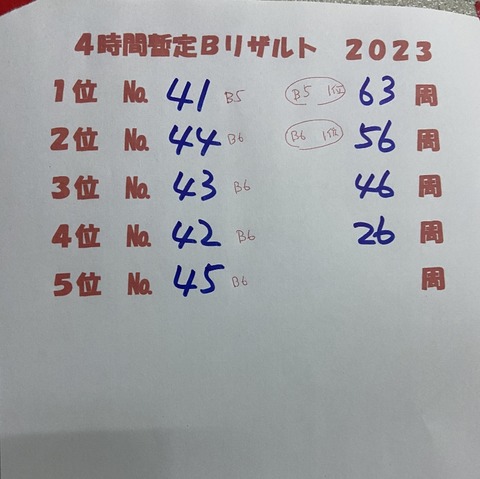 4時間暫定Bリザルト 2023
1位 No. 41 B5 B5 1位 63 周
2位 No. 44 B6 B6 1位 56 周
3位 No. 43 B6 46 周
4位 No. 42 B6 26 周
5位 No. 45 B6 周